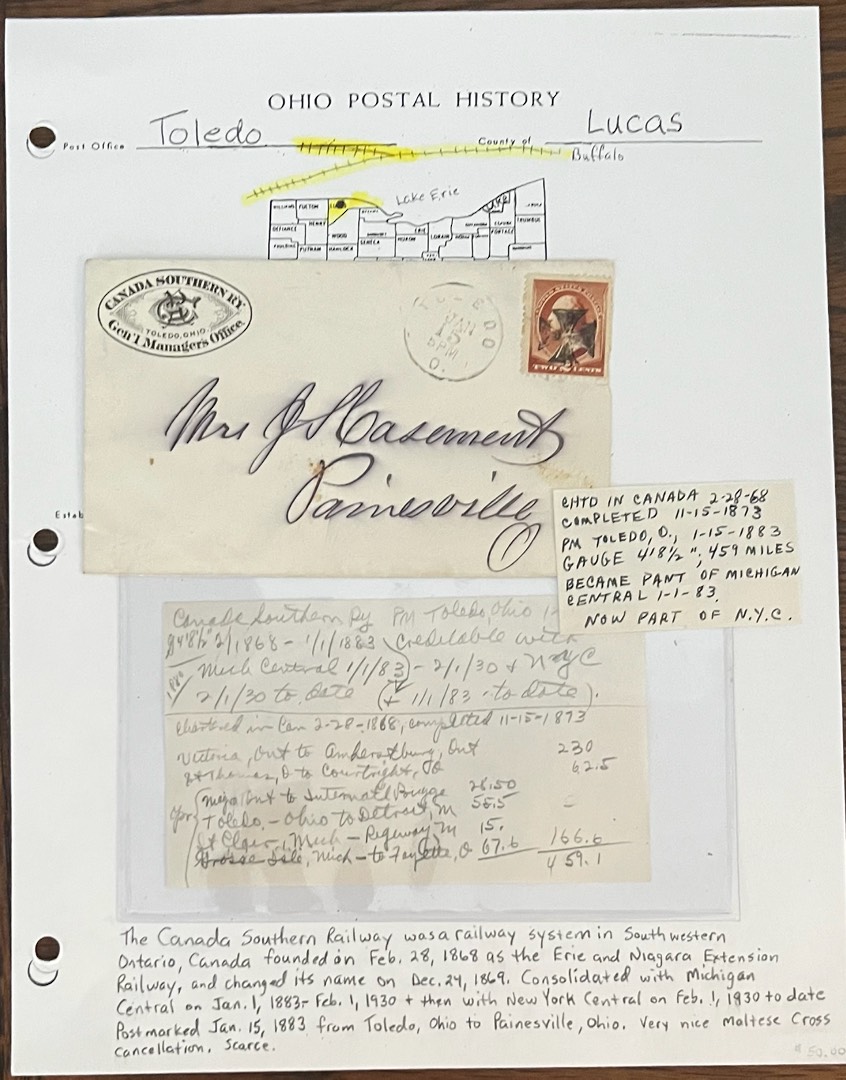 OHIO POSTAL HISTORY
Post Office Toledo County of Lucas
Buffalo
Lake Erie
WILLIAMS FULTON LUCAS
DEFIANCE HENRY WOOD
PAULDING PUTNAM HANCOCK SENECA HURON LORAIN PORTAGE TRUMBULL
CANADA SOUTHERN RY.
TOLEDO, OHIO.
Gen'l Managers Office.
TOLEDO
JAN
15
5PM
O.
TWO CENTS
Mrs J S Casement
Painesville
O
Estab
CHTD IN CANADA 2-28-68
COMPLETED 11-15-1873
PM TOLEDO, O., 1-15-1883
GAUGE 4'8½", 459 MILES
BECAME PART OF MICHIGAN
CENTRAL 1-1-83.
NOW PART OF N.Y.C.
Canada Southern Ry PM Toledo, Ohio 1-
4'8½" 2/1868 - 1/1/1883 Creditable with
Mich Central 1/1/83 - 2/1/30 + NYC
2/1/30 to date (1/1/83 - to date).
Chartered in Can 2-28-1868, completed 11-15-1873
Victoria, Ont to Amherstburg, Ont 230
St Thomas, O to Courtright, O 62.5
Ont to Internatl Bridge 28.50
Toledo - Ohio to Detroit, M 55.5
St Clair, Mich - Ridgeway M 15.
Grosse Isle, Mich - to Fayette, O 67.6 166.6
459.1
The Canada Southern Railway was a railway system in Southwestern
Ontario, Canada founded on Feb. 28, 1868 as the Erie and Niagara Extension
Railway, and changed its name on Dec. 24, 1869. Consolidated with Michigan
Central on Jan. 1, 1883- Feb. 1, 1930 + then with New York Central on Feb. 1, 1930 to date
Postmarked Jan. 15, 1883 from Toledo, Ohio to Painesville, Ohio. Very nice Maltese Cross
cancellation. Scarce.
$50.00